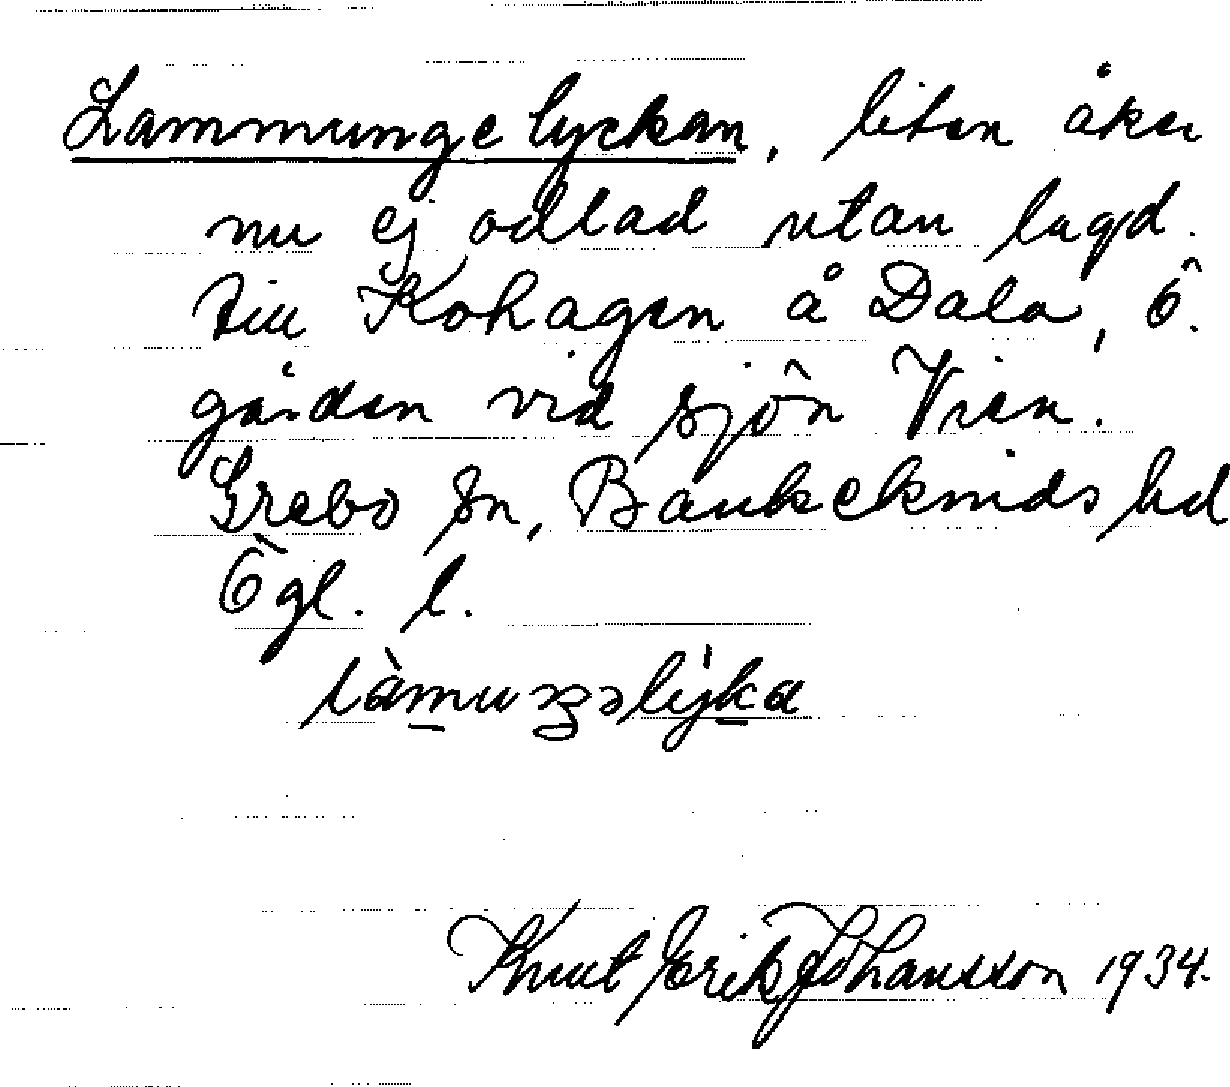 Lammungelyckan, liten åker
nu ej odlad utan lagd.
till Kohagen å Dala, Ö.
gården vid sjön Vien.
Grebo sn, Bankekinds hd
Ögl. l.
Knut Erik Johansson 1934.